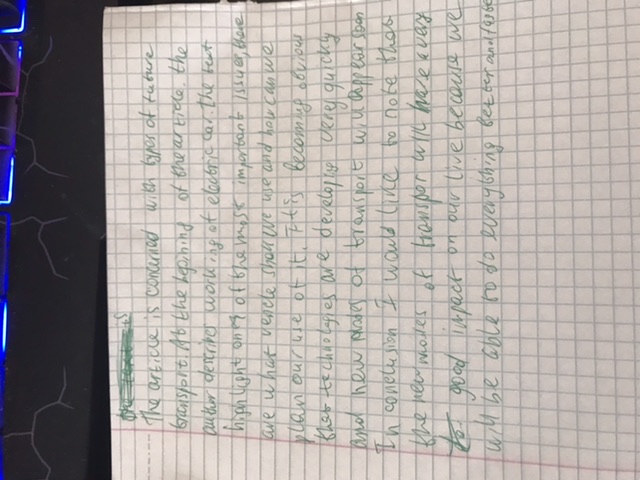 The article is concerned with types of future
transport. At the begining of the article the
author describes working of electric car. the text
highlight only of the most important issues there
are what vehicle should we use and how can we
plan our use of it. It is becoming obvious
that technologies are developing very quickly
and new modes of transport will appear soon
In conclusion I would like to note that
the new modes of transpor will have a very
good impact on our live because we
will be able to do everything better and faster